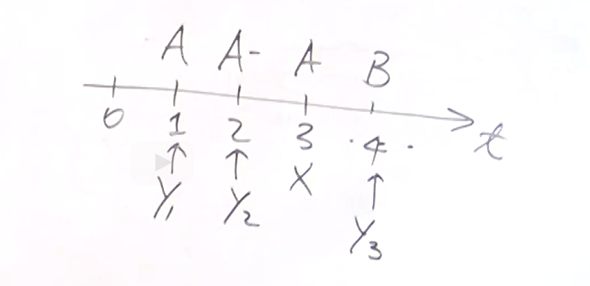 A A- A B
0 1 2 3 · 4 · t
↑ ↑ X ↑
Y₁ Y₂ Y₃